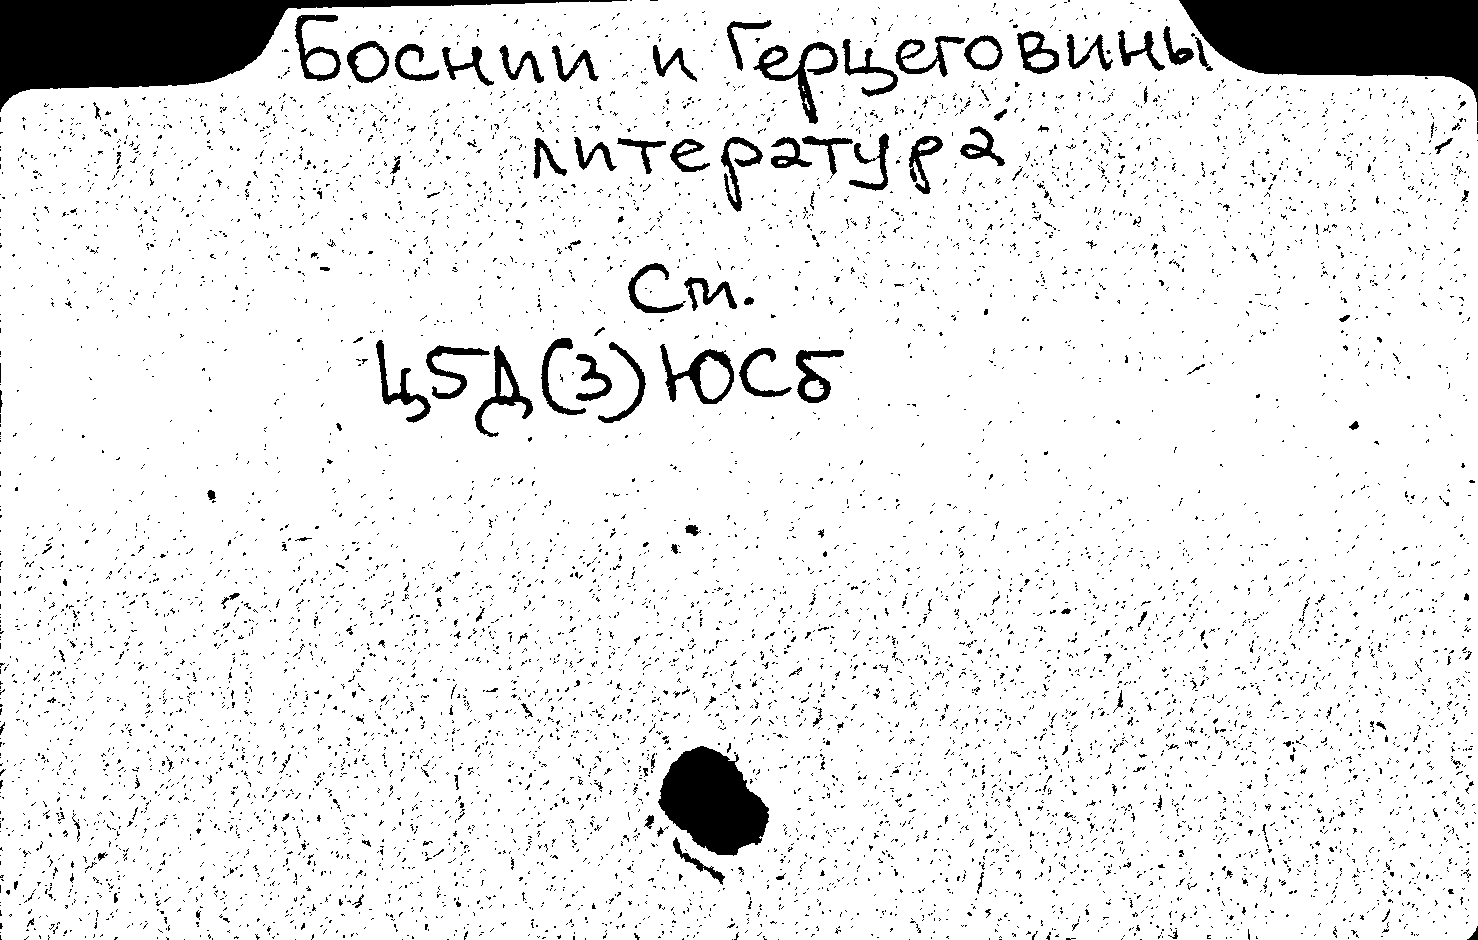 Боснии и Герцеговины
литература
См.
Ц5Д(3)ЮСб